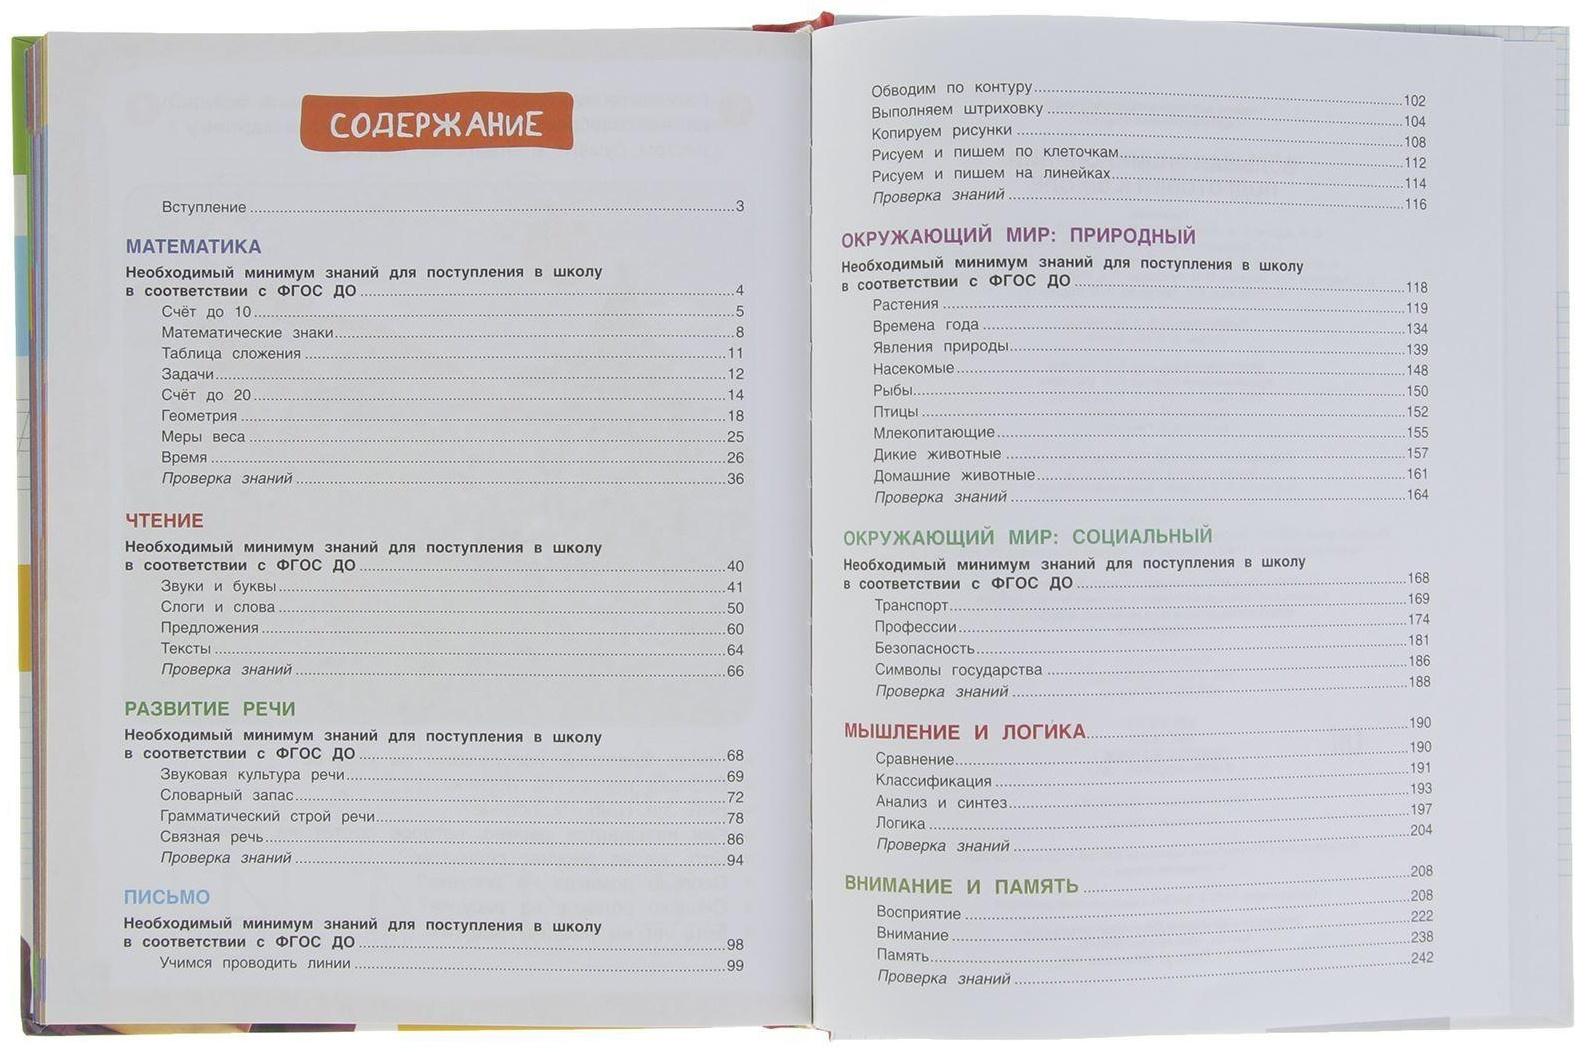 СОДЕРЖАНИЕ
Вступление ........ 3
МАТЕМАТИКА
Необходимый минимум знаний для поступления в школу
в соответствии с ФГОС ДО ........ 4
Счёт до 10 ........ 5
Математические знаки ........ 8
Таблица сложения ........ 11
Задачи ........ 12
Счёт до 20 ........ 14
Геометрия ........ 18
Меры веса ........ 25
Время ........ 26
Проверка знаний ........ 36
ЧТЕНИЕ
Необходимый минимум знаний для поступления в школу
в соответствии с ФГОС ДО ........ 40
Звуки и буквы ........ 41
Слоги и слова ........ 50
Предложения ........ 60
Тексты ........ 64
Проверка знаний ........ 66
РАЗВИТИЕ РЕЧИ
Необходимый минимум знаний для поступления в школу
в соответствии с ФГОС ДО ........ 68
Звуковая культура речи ........ 69
Словарный запас ........ 72
Грамматический строй речи ........ 78
Связная речь ........ 86
Проверка знаний ........ 94
ПИСЬМО
Необходимый минимум знаний для поступления в школу
в соответствии с ФГОС ДО ........ 98
Учимся проводить линии ........ 99
Обводим по контуру ........ 102
Выполняем штриховку ........ 104
Копируем рисунки ........ 108
Рисуем и пишем по клеточкам ........ 112
Рисуем и пишем на линейках ........ 114
Проверка знаний ........ 116
ОКРУЖАЮЩИЙ МИР: ПРИРОДНЫЙ
Необходимый минимум знаний для поступления в школу
в соответствии с ФГОС ДО ........ 118
Растения ........ 119
Времена года ........ 134
Явления природы ........ 139
Насекомые ........ 148
Рыбы ........ 150
Птицы ........ 152
Млекопитающие ........ 155
Дикие животные ........ 157
Домашние животные ........ 161
Проверка знаний ........ 164
ОКРУЖАЮЩИЙ МИР: СОЦИАЛЬНЫЙ
Необходимый минимум знаний для поступления в школу
в соответствии с ФГОС ДО ........ 168
Транспорт ........ 169
Профессии ........ 174
Безопасность ........ 181
Символы государства ........ 186
Проверка знаний ........ 188
МЫШЛЕНИЕ И ЛОГИКА ........ 190
Сравнение ........ 190
Классификация ........ 191
Анализ и синтез ........ 193
Логика ........ 197
Проверка знаний ........ 204
ВНИМАНИЕ И ПАМЯТЬ ........ 208
Восприятие ........ 208
Внимание ........ 222
Память ........ 238
Проверка знаний ........ 242